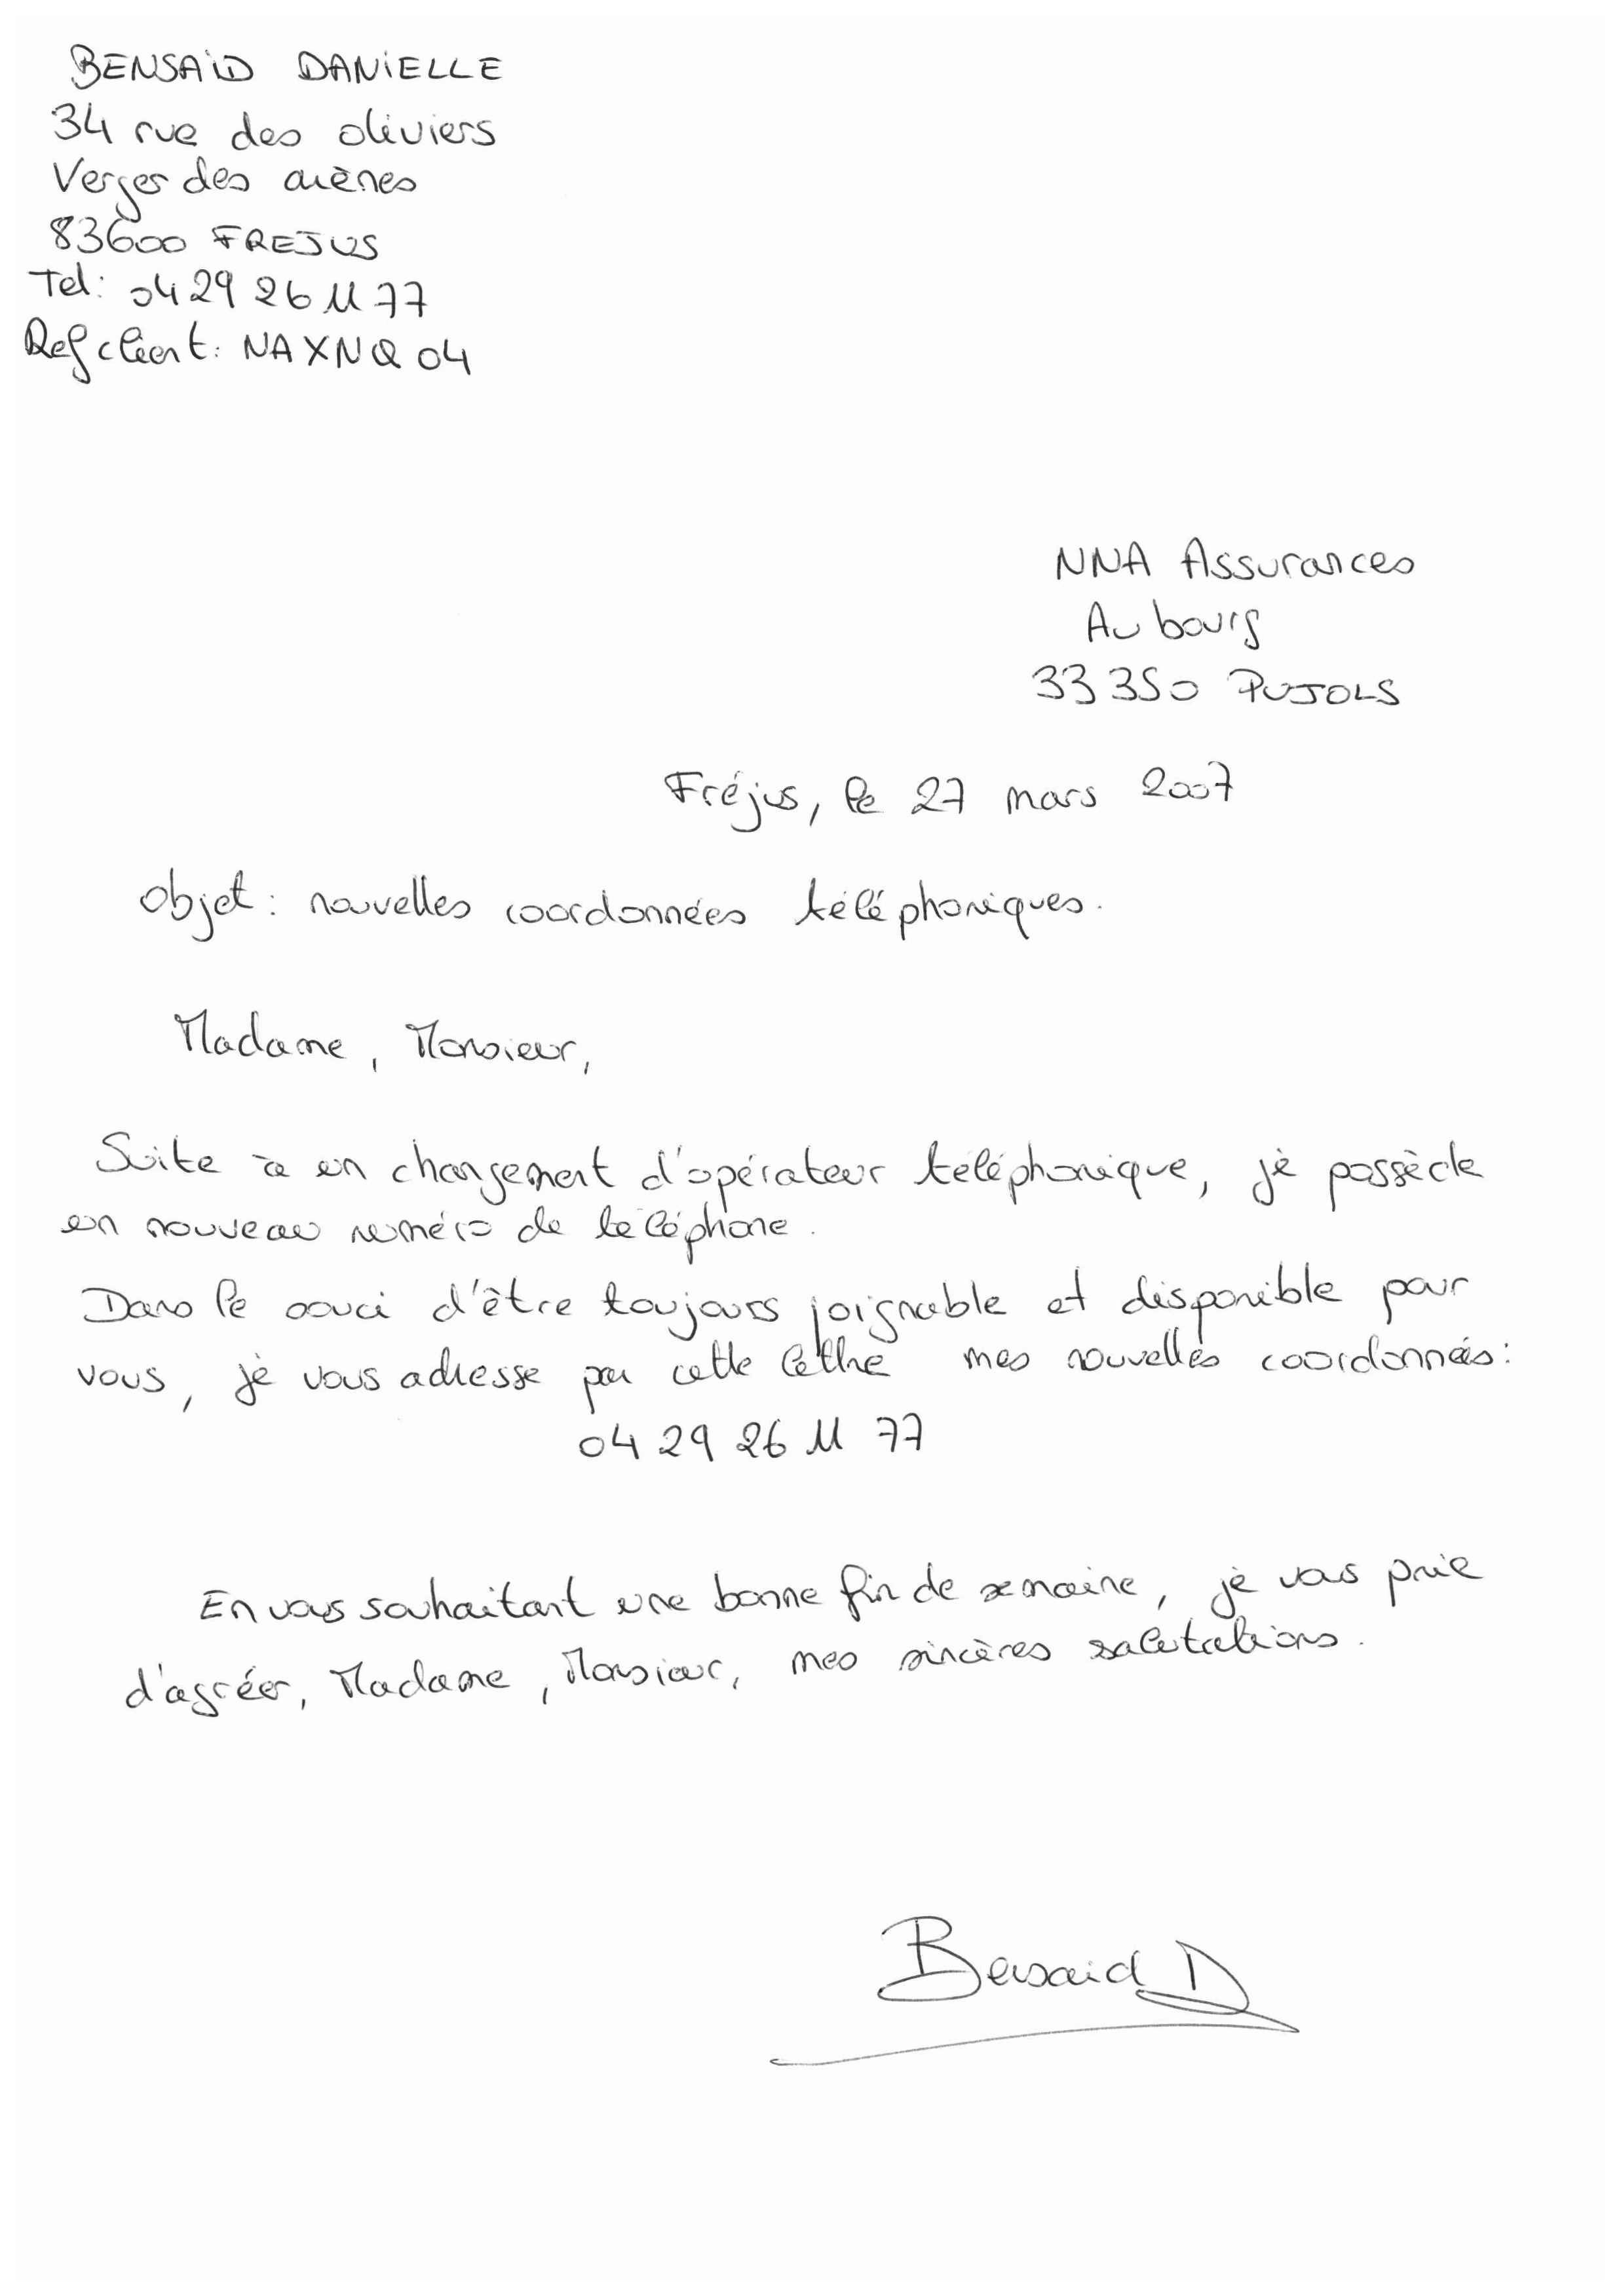 BENSAÏD DANIELLE
34 rue des oliviers
Verger des arènes
83600 FREJUS
Tel: 04 29 26 11 77
Ref client: NAXNQ 04
NNA Assurances
Au bourg
33 350 PUJOLS
Fréjus, le 27 mars 2007
Objet : nouvelles coordonnées téléphoniques.
Madame, Monsieur,
Suite à un changement d'opérateur téléphonique, je possède
un nouveau numéro de téléphone.
Dans le souci d'être toujours joignable et disponible pour
vous, je vous adresse par cette lettre mes nouvelles coordonnées :
04 29 26 11 77
En vous souhaitant une bonne fin de semaine, je vous prie
d'agréer, Madame, Monsieur, mes sincères salutations.
Bensaid D